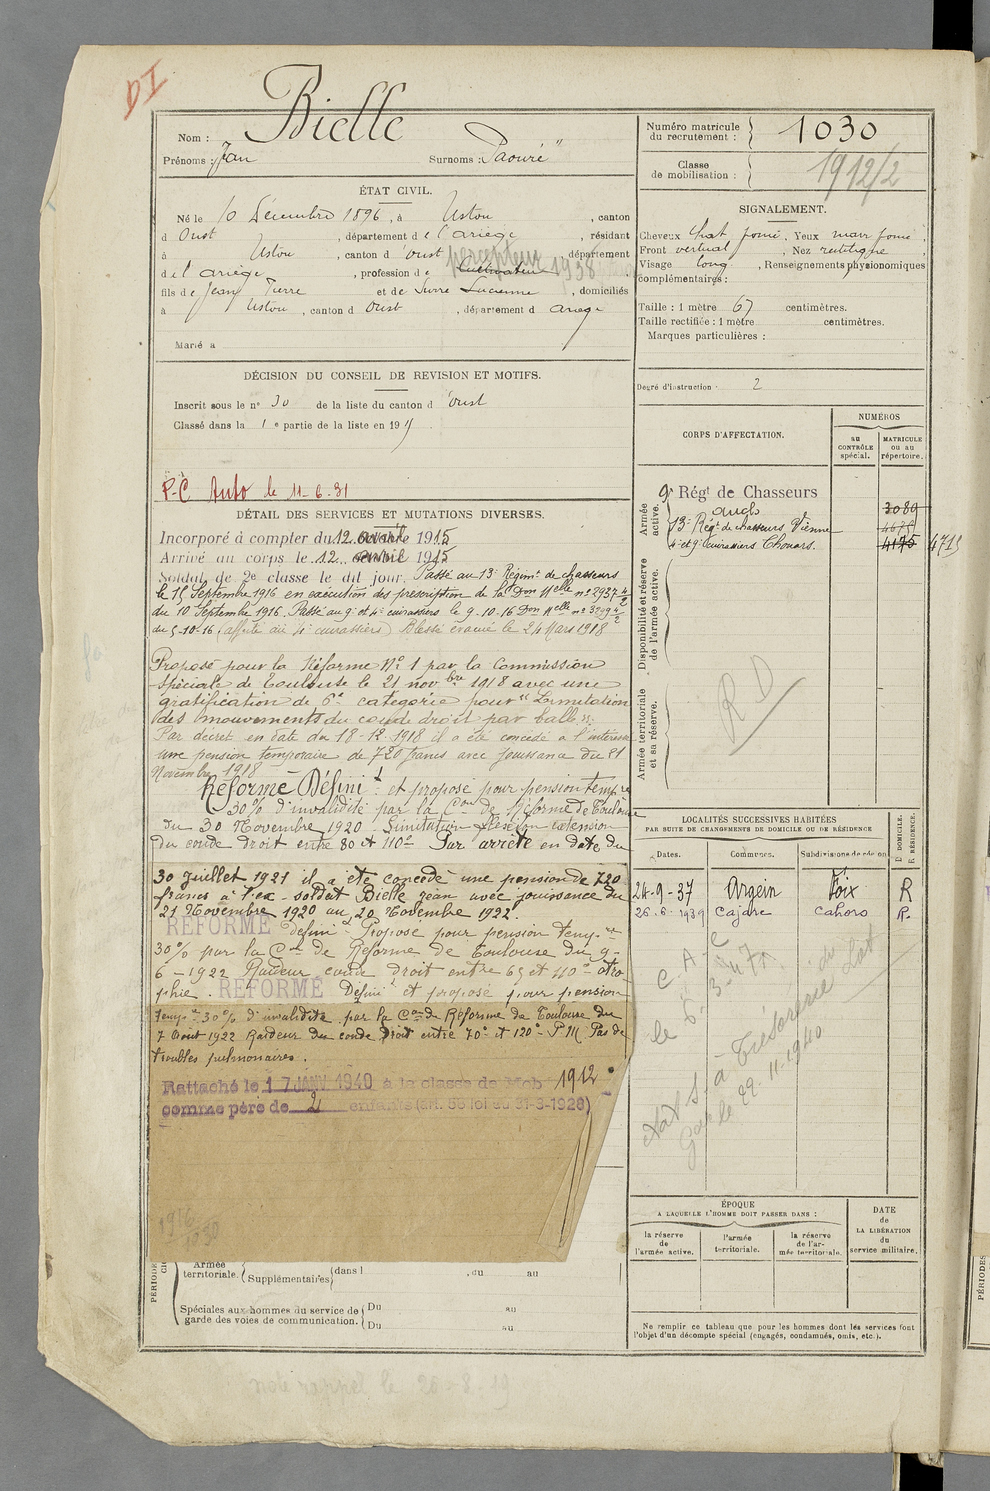 DI
Nom : Bielle
Prénoms : Jean Surnoms : "Paouré"
Numéro matricule du recrutement : 1030
Classe de mobilisation : 1912/2
ÉTAT CIVIL.
Né le 10 Décembre 1896, à Ustou, canton
d Oust, département de l'ariège, résidant
à Ustou, canton d Oust, département
de l'ariège, profession de Cultivateur percepteur 1938
fils de Jean Pierre et de Lucienne, domiciliés
à Ustou, canton d Oust, département d ariège
Marié à
SIGNALEMENT.
Cheveux chat foncé, Yeux marr foncé,
Front vertical, Nez rectiligne,
Visage long, Renseignements physionomiques
complémentaires :
Taille : 1 mètre 67 centimètres.
Taille rectifiée : 1 mètre centimètres.
Marques particulières :
Degré d'instruction : 2
DÉCISION DU CONSEIL DE REVISION ET MOTIFS.
Inscrit sous le n° 30 de la liste du canton d Oust
Classé dans la 1e partie de la liste en 191
P-C Auto le 11-6-31
CORPS D'AFFECTATION.
NUMÉROS
au CONTRÔLE spécial.
MATRICULE ou au répertoire.
Armée active.
9e Régt de Chasseurs 3089
13e Régt de chasseurs Vienne
4e et 9e Cuirassiers Thouars. 4195 4715
Disponibilité et réserve de l'armée active.
Armée territoriale et sa réserve.
RD
DÉTAIL DES SERVICES ET MUTATIONS DIVERSES.
Incorporé à compter du 12 avril 1915
Arrivé au corps le 12 avril 1915
Soldat de 2e classe le dit jour. Passé au 13e Régimt de chasseurs
le 15 Septembre 1916 en exécution des prescription de la Don Mlle n° 2937 4/2
du 10 Septembre 1916. Passé au 9e et 4e cuirassiers le 9-10-16 Don Mlle n° 3209 4/2
du 5-10-16 (affecté au 4e cuirassiers) Blessé évacué le 24 Mars 1918
Proposé pour la Réforme N° 1 par la Commission
Spéciale de Toulouse le 21 novbre 1918 avec une
gratification de 6e catégorie pour "Limitation
des mouvements du coude droit par balle".
Par décret en date du 18-12-1918 il a été concédé à l'intéressé
une pension temporaire de 720 francs avec jouissance du 21
Novembre 1918
Réformé Définit et proposé pour pension tempre
30% d'invalidité par la Con de Réforme de Toulouse
du 30 Novembre 1920 - Limitation flexion extension
du coude droit entre 80 et 110° Par arrêté en date du
30 Juillet 1921 il a été concédé une pension de 720
francs à l'ex-soldat Bielle Jean avec jouissance du
21 Novembre 1920 au 20 Novembre 1922.
RÉFORMÉ Définit Proposé pour pension tempre
30% par la Con de Réforme de Toulouse du 9-
6-1922 Raideur coude droit entre 65 et 110° atro
phie. RÉFORMÉ Définit et proposé pour pension
tempre 30% d'invalidité par la Con de Réforme de Toulouse du
7 Aout 1922 Raideur du coude droit entre 70° et 120° - P.M. Pas de
troubles pulmonaires.
Rattaché le 17 JANV 1940 à la classe de Mob 1912
comme père de 2 enfants (art. 58 loi du 31-3-1928)
LOCALITÉS SUCCESSIVES HABITÉES
PAR SUITE DE CHANGEMENTS DE DOMICILE OU DE RÉSIDENCE.
D DOMICILE. R RÉSIDENCE.
Dates. Communes. Subdivisions de région
24-9-37 Argein Foix R
26-6-1939 Cajarc Cahors R.
C.A.C
ÉPOQUE
A LAQUELLE L'HOMME DOIT PASSER DANS :
la réserve de l'armée active.
l'armée territoriale.
la réserve de l'armée territoriale.
DATE de LA LIBÉRATION du service militaire.
Ne remplir ce tableau que pour les hommes dont les services font
l'objet d'un décompte spécial (engagés, condamnés, omis, etc.).
PÉRIODES
Armée territoriale. Supplémentaires dans l , du au
Spéciales aux hommes du service de garde des voies de communication. Du au
Du au
PÉRIODES